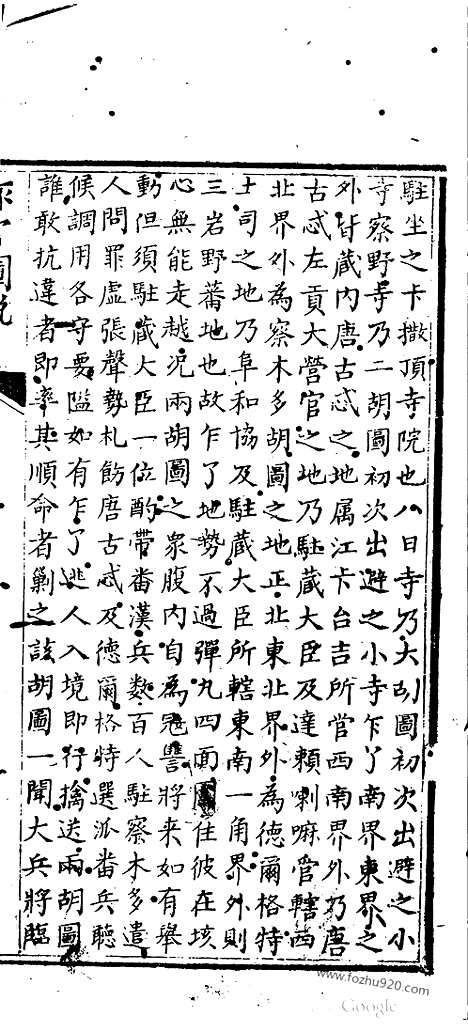 駐坐之卡撒頂寺院也八日寺乃大胡圖初次出避之小
寺察野寺乃二胡圖初次出避之小寺乍丫南界東界之
外皆藏内唐古忒之地属江卡台吉所管西南界外乃唐
古忒左貢大營官之地乃駐藏大臣及達賴喇嘛管轄西
北界外為察木多胡圖之地正北東北界外為德爾格特
土司之地乃阜和協及駐藏大臣所轄東南一角界外則
三岩野蕃地也故乍了地勢不過彈丸四面圍住彼在垓
心無能走越况兩胡圖之衆腹内自為冦讐將来如有舉
動但須駐藏大臣一位酌帶番漢兵数百人駐察木多遣
人問罪虚張聲勢札飭唐古忒及德爾格特選派番兵聽
候調用各守要隘如有乍了逃人入境即行擒送兩胡圖
誰敢抗違者即率其順命者剿之該胡圖一聞大兵將臨
圖說
www.fozhu920.com
Google